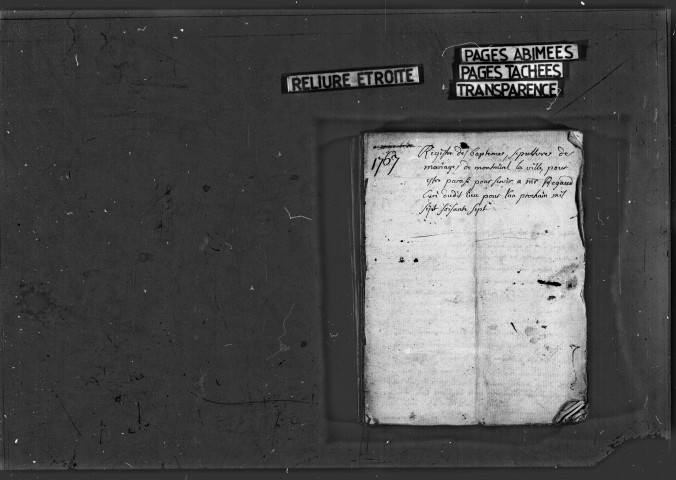 RELIURE ETROITE
PAGES ABIMEES
PAGES TACHEES
TRANSPARENCE
1767
Registre des baptemes, sepultures de
mariages de montaud la ville, pour
estre parafé pour servir a mr Regaud
Curé dudit lieu pour l'an prochain mil
sept soisante sept